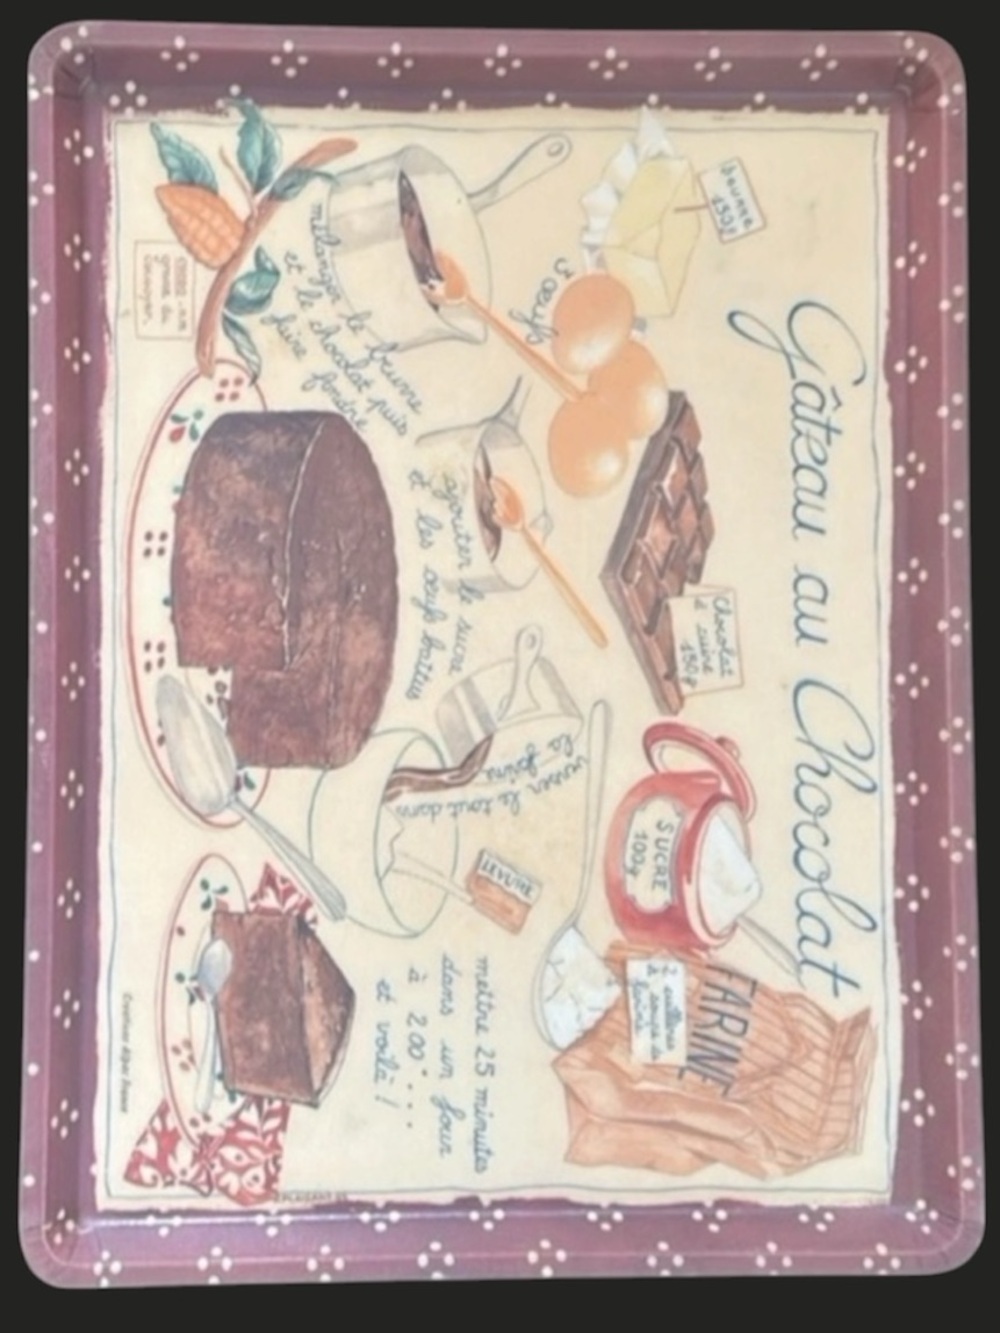 Gâteau au Chocolat
beurre
150g
3 œufs
chocolat
à cuire
150g
SUCRE
100g
FARINE
2 cuillères
à soupe de
farine
mélanger le beurre
et le chocolat puis
faire fondre
ajouter le sucre
et les œufs battus
verser le tout dans
la farine
LEVURE
mettre 25 minutes
dans un four
à 200°...
et voilà !
Créateur Alpac France